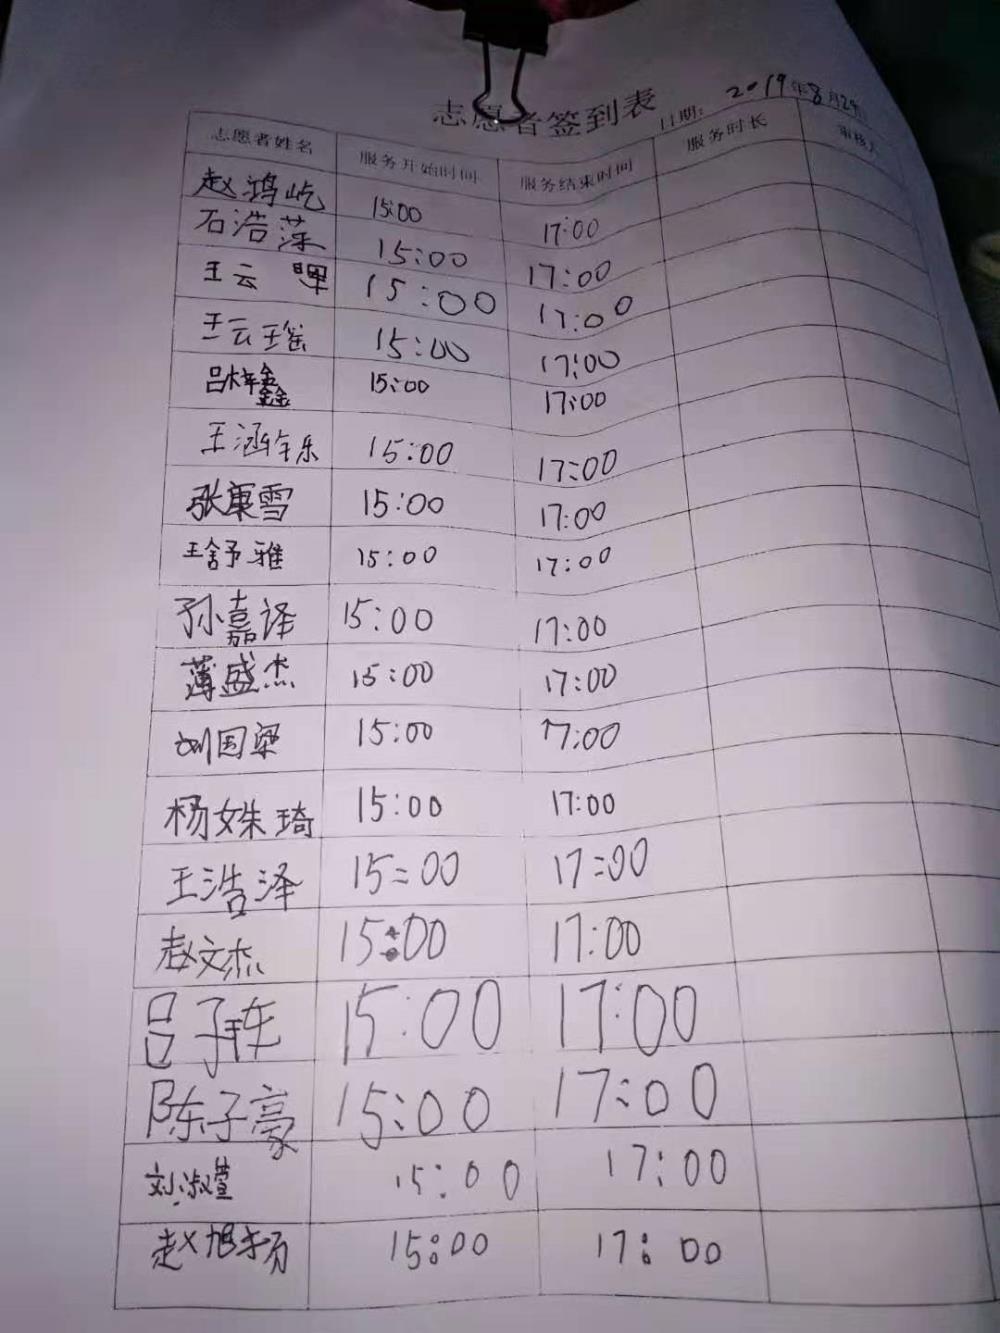 志愿者签到表
日期: 2019年8月29
志愿者姓名 服务开始时间 服务结束时间 服务时长 审核人
赵鸿屹 15:00 17:00
石浩萍 15:00 17:00
王云晖 15:00 17:00
王云瑶 15:00 17:00
吕梓鑫 15:00 17:00
王涵钰乐 15:00 17:00
张惠雪 15:00 17:00
王舒雅 15:00 17:00
孙嘉译 15:00 17:00
薄盛杰 15:00 17:00
刘国梁 15:00 17:00
杨姝琦 15:00 17:00
王浩泽 15:00 17:00
赵文杰 15:00 17:00
吕子 15:00 17:00
陈子豪 15:00 17:00
刘淑萱 15:00 17:00
赵旭扬 15:00 17:00